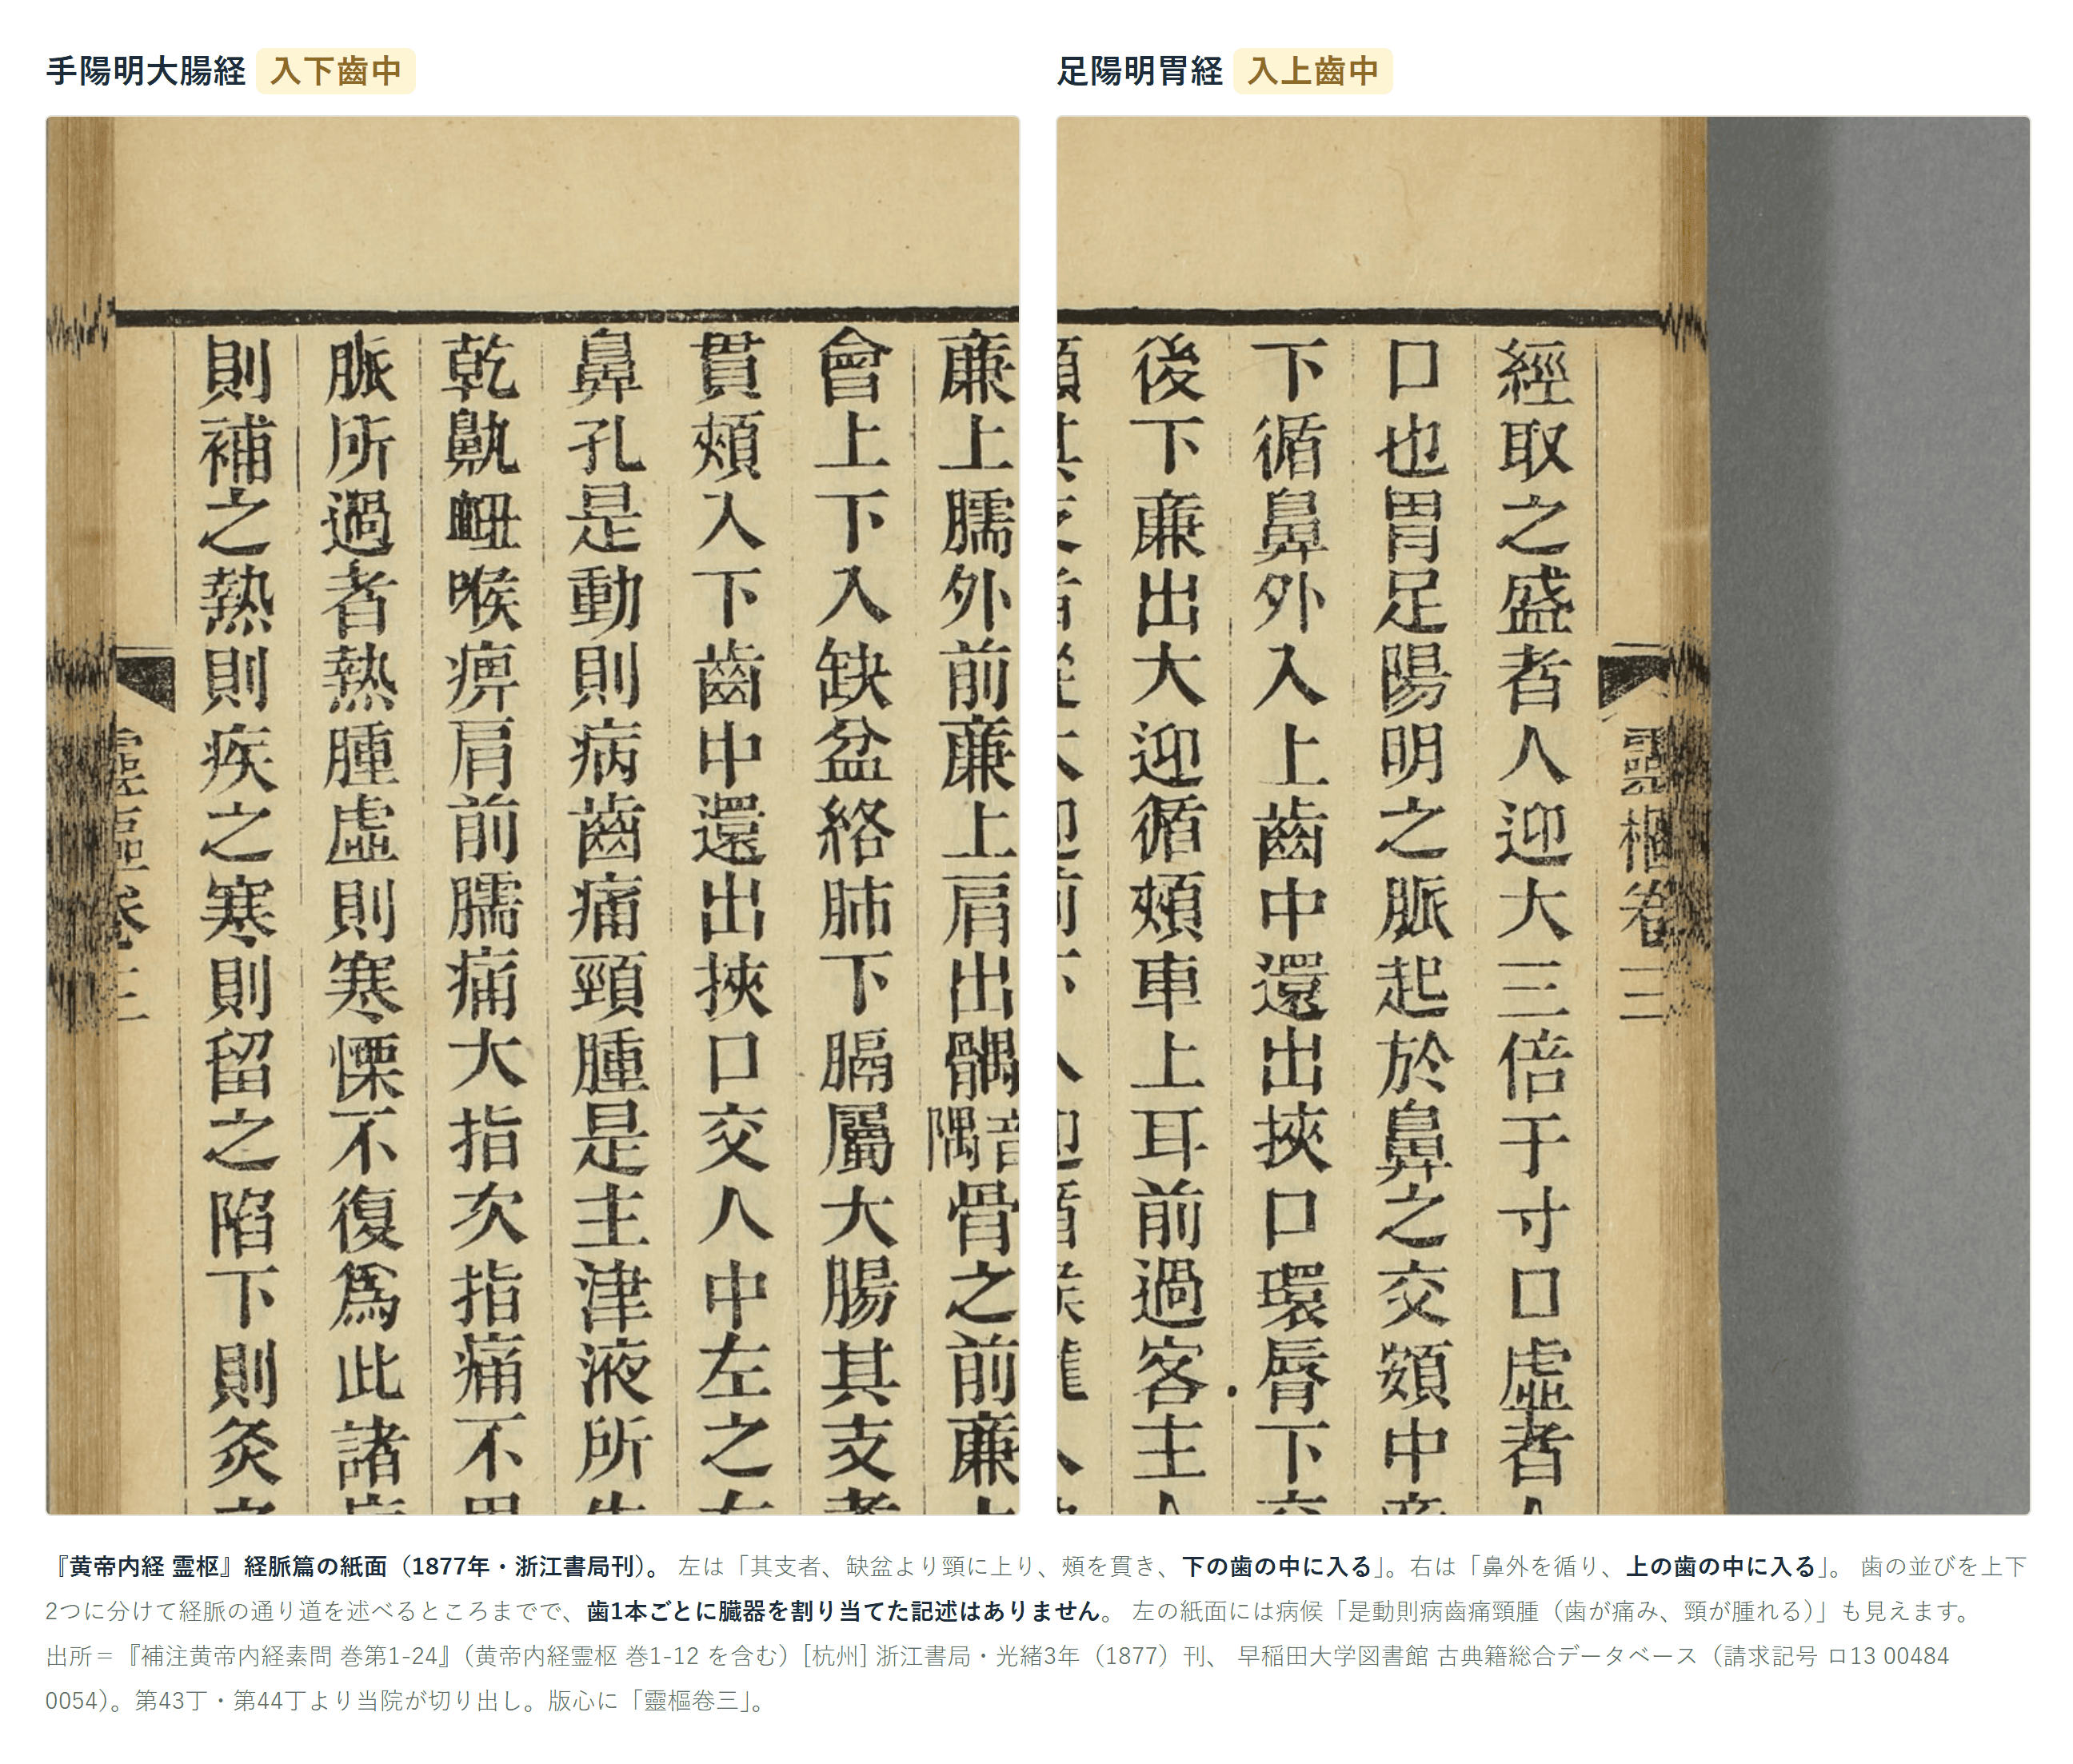 手陽明大腸経 入下齒中
廉上臑外前廉上肩出髃音隅骨之前廉
會上下入缺盆絡肺下膈屬大腸其支
貫頰入下齒中還出挾口交人中左之
鼻孔是動則病齒痛頸腫是主津液所
乾鼽衄喉痹肩前臑痛大指次指痛不
脈所過者熱腫虛則寒慄不復爲此諸
則補之熱則疾之寒則留之陷下則灸
足陽明胃経 入上齒中
靈樞卷三
經取之盛者人迎大三倍于寸口虛者
口也胃足陽明之脈起於鼻之交頞中
下循鼻外入上齒中還出挾口環脣下
後下廉出大迎循頰車上耳前過客主
『黄帝内経 霊枢』経脈篇の紙面（1877年・浙江書局刊）。 左は「其支者、缺盆より頸に上り、頰を貫き、下の歯の中に入る」。右は「鼻外を循り、上の歯の中に入る」。 歯の並びを上下
2つに分けて経脈の通り道を述べるところまでで、歯1本ごとに臓器を割り当てた記述はありません。 左の紙面には病候「是動則病齒痛頸腫（歯が痛み、頸が腫れる）」も見えます。
出所＝『補注黄帝内経素問 巻第1-24』（黄帝内経霊枢 巻1-12 を含む）[杭州] 浙江書局・光緒3年（1877）刊、 早稲田大学図書館 古典籍総合データベース（請求記号 ロ13 00484
0054）。第43丁・第44丁より当院が切り出し。版心に「靈樞卷三」。